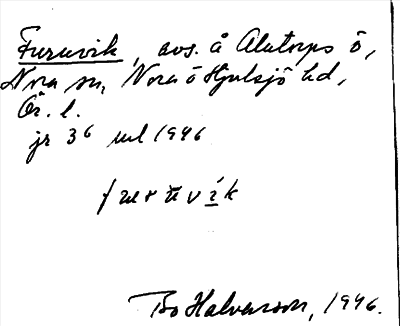 Furuvik, avs. å Alntorps ö,
Nora sn, Nora o Hjulsjö hd,
Ör. l.
jr 36 url 1946
furuvik
Bo Halvarson, 1946.